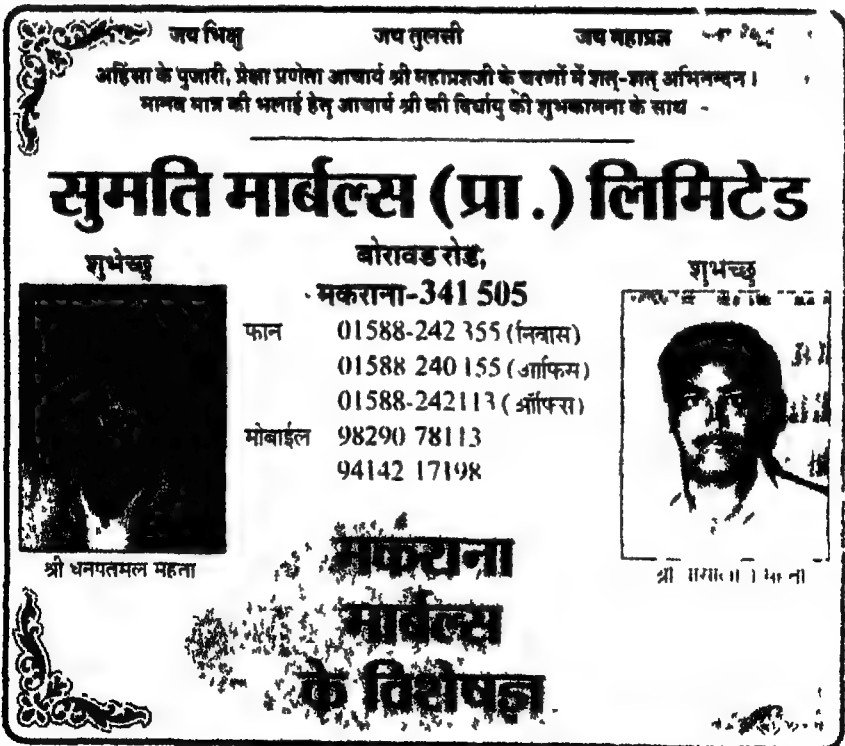 जय भिक्षु जय तुलसी जय महाप्रज्ञ
अहिंसा के पुजारी, प्रेक्षा प्रणेता आचार्य श्री महाप्रज्ञजी के चरणों में शत्-शत् अभिनन्दन।
मानव मात्र की भलाई हेतु आचार्य श्री की दिर्घायु की शुभकामना के साथ -
सुमति मार्बल्स (प्रा.) लिमिटेड
बोरावड रोड,
मकराना-341 505
शुभेच्छु
शुभच्छु
फान 01588-242 355 (निवास)
01588 240 155 (ऑफिस)
01588-242113 (ऑफिस)
मोबाईल 98290 78113
94142 17198
श्री धनपतमल महता
श्री
मकराना
मार्बल्स
के विशेषज्ञ